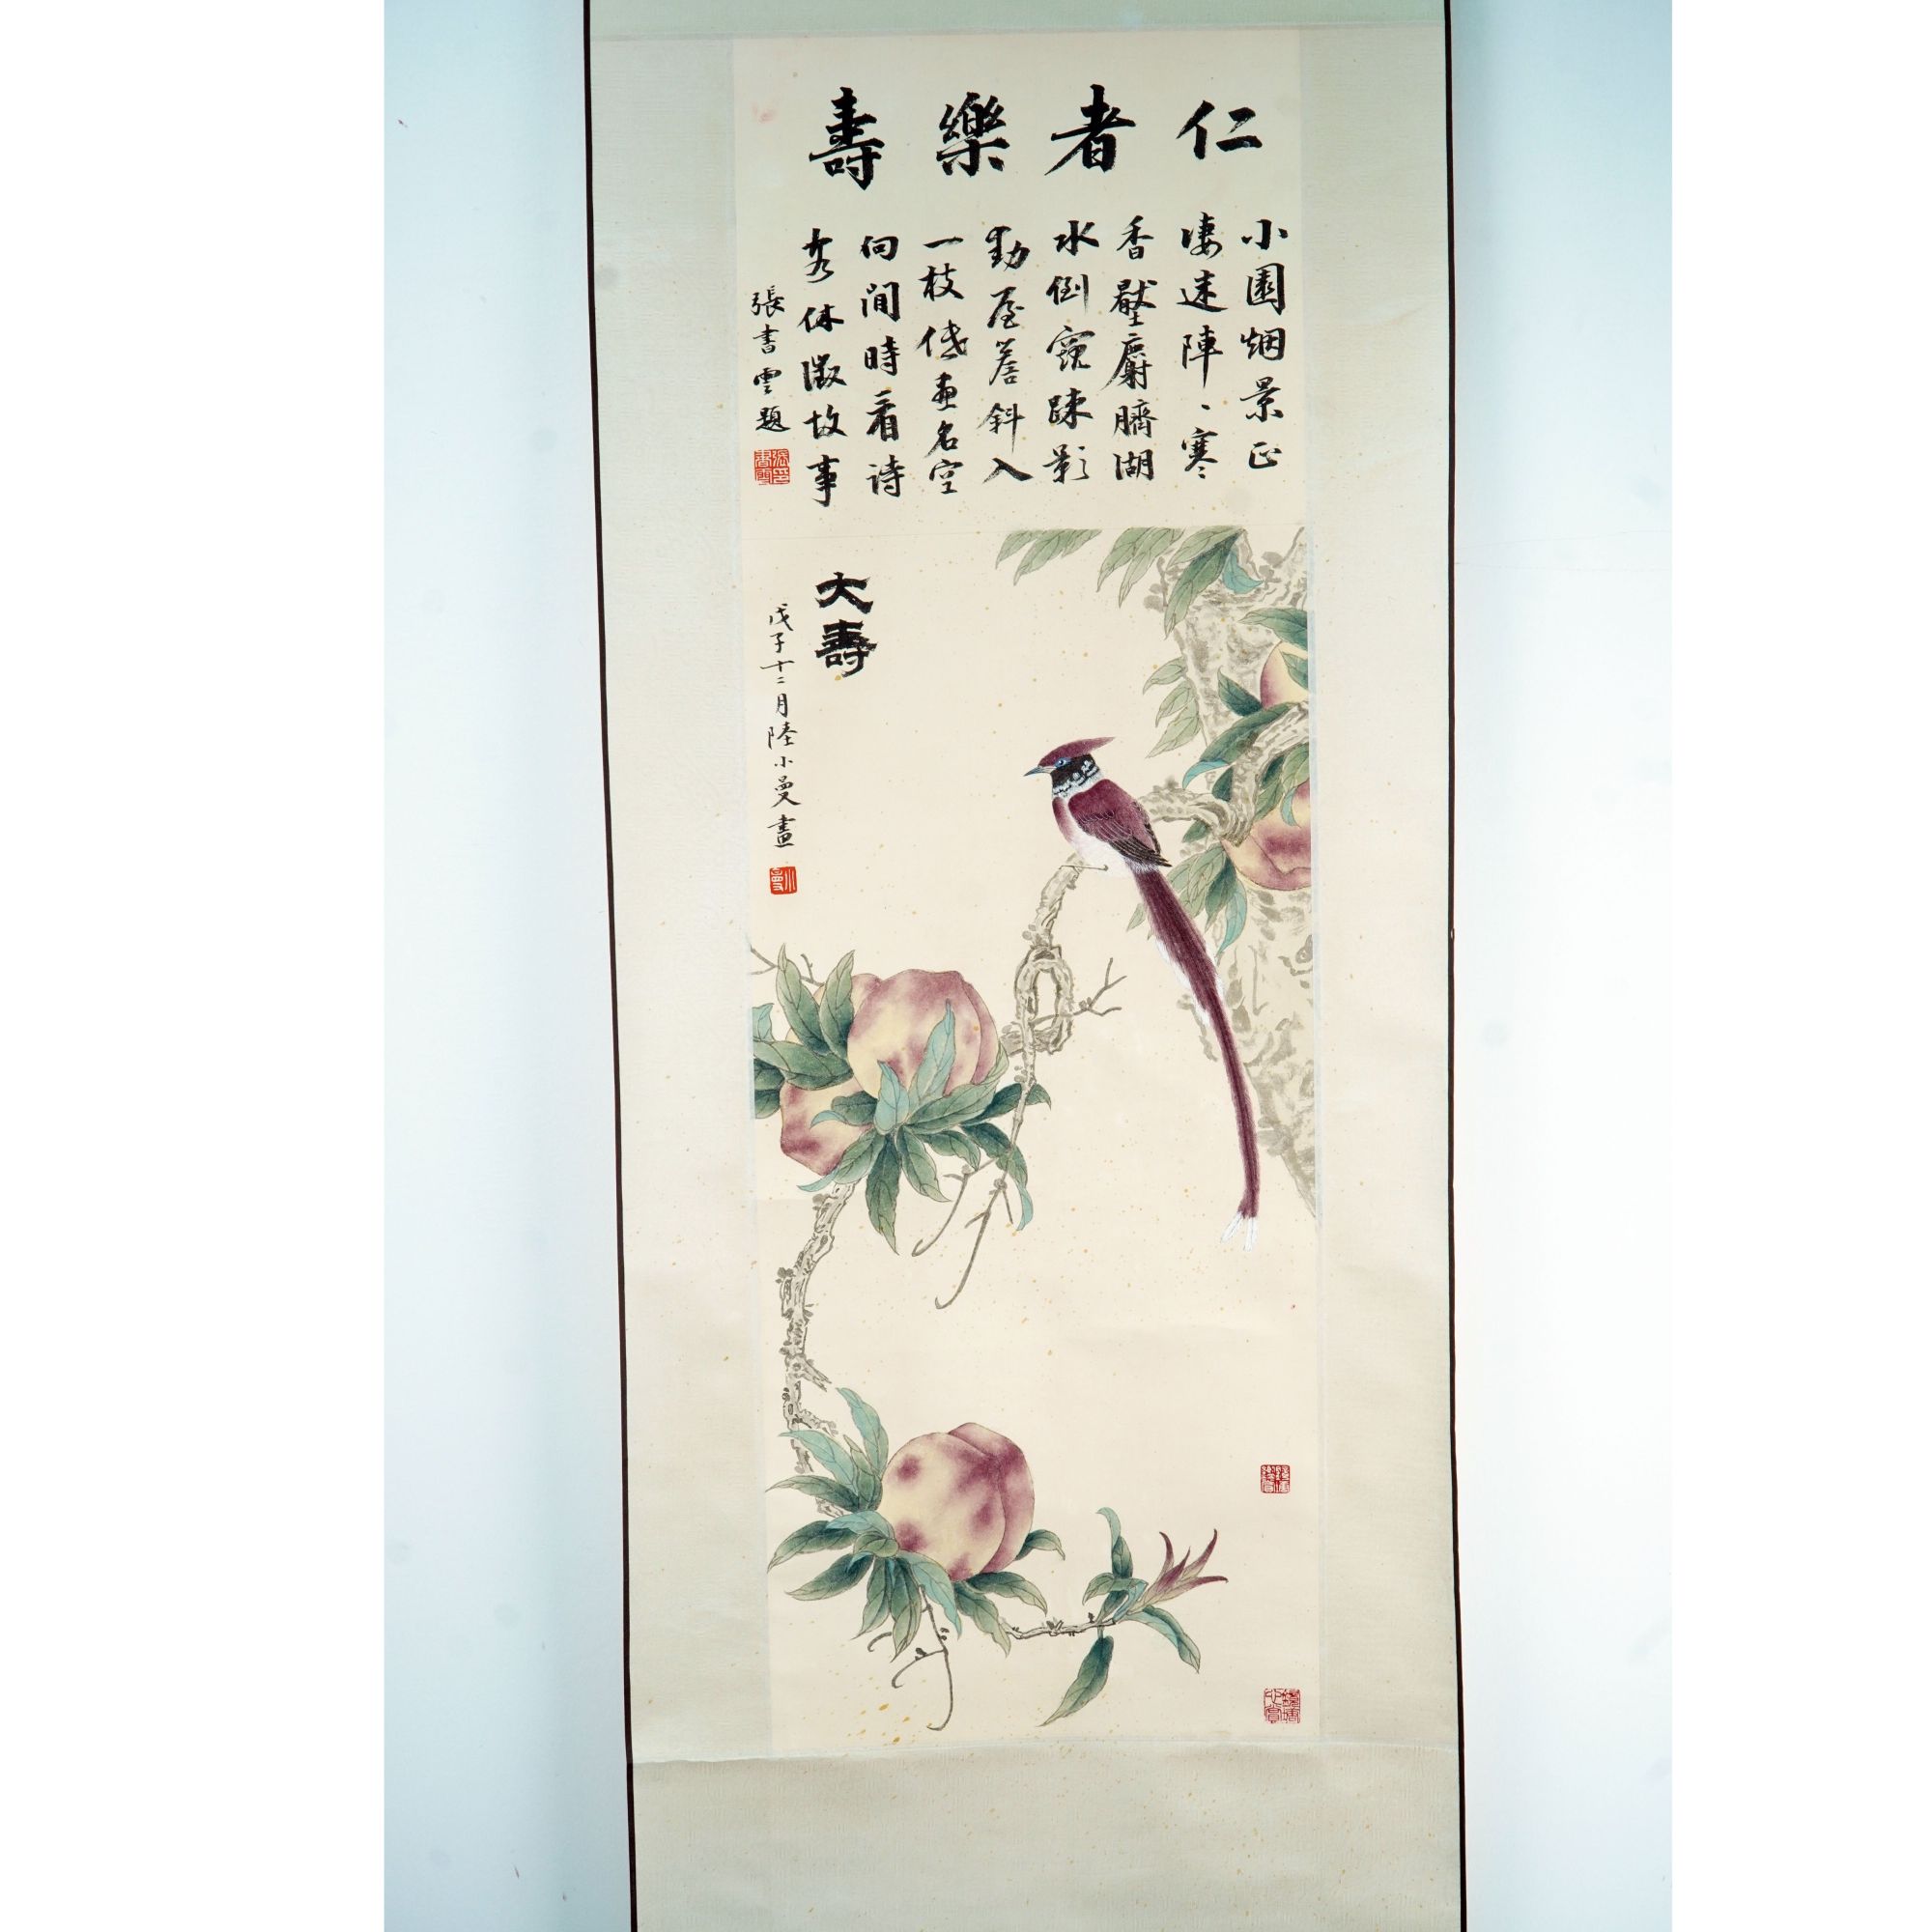 仁者樂壽
小園烟景正
凄迷陣、寒
香壓麝臍湖
水倒窺疎影
動屋簷斜入
一枝低畫名空
向閒時看詩
客休徵故事
張書雲題
大壽
戊子十二月陸小曼畫
小曼